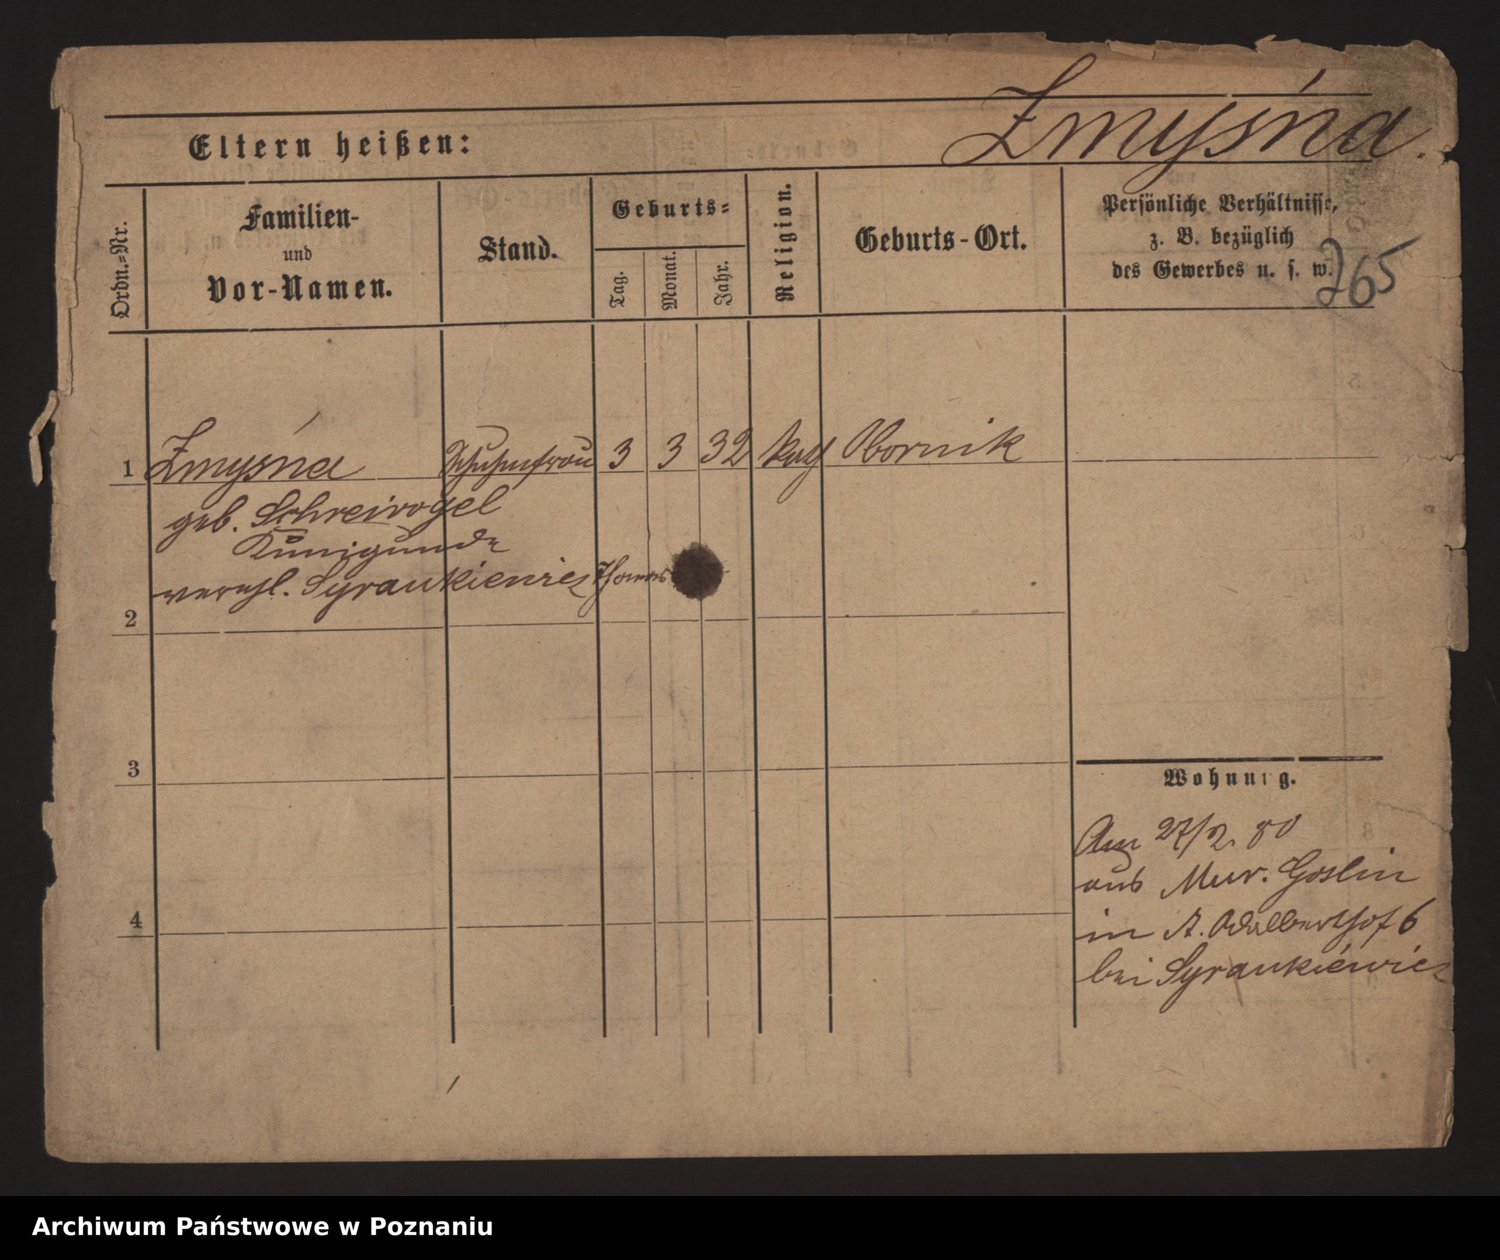 Zmyśna.
Eltern heißen:
Ordn.-Nr.
Familien-
und
Vor-Namen.
Stand.
Geburts-
Tag.
Monat.
Jahr.
Religion.
Geburts-Ort.
Persönliche Verhältnisse,
z. B. bezüglich
des Gewerbes u. s. w.
265
1 Zmyśna 3 3 32 kath Obornik
geb. Schreivogel
Kunigunde
verehl. Syrankiewicz Thomas
2
3
4
Wohnung.
Am 27/2. 80
aus Mur. Goslin
in A. Adalberthof 6
bei Syrankiewicz
Archiwum Państwowe w Poznaniu